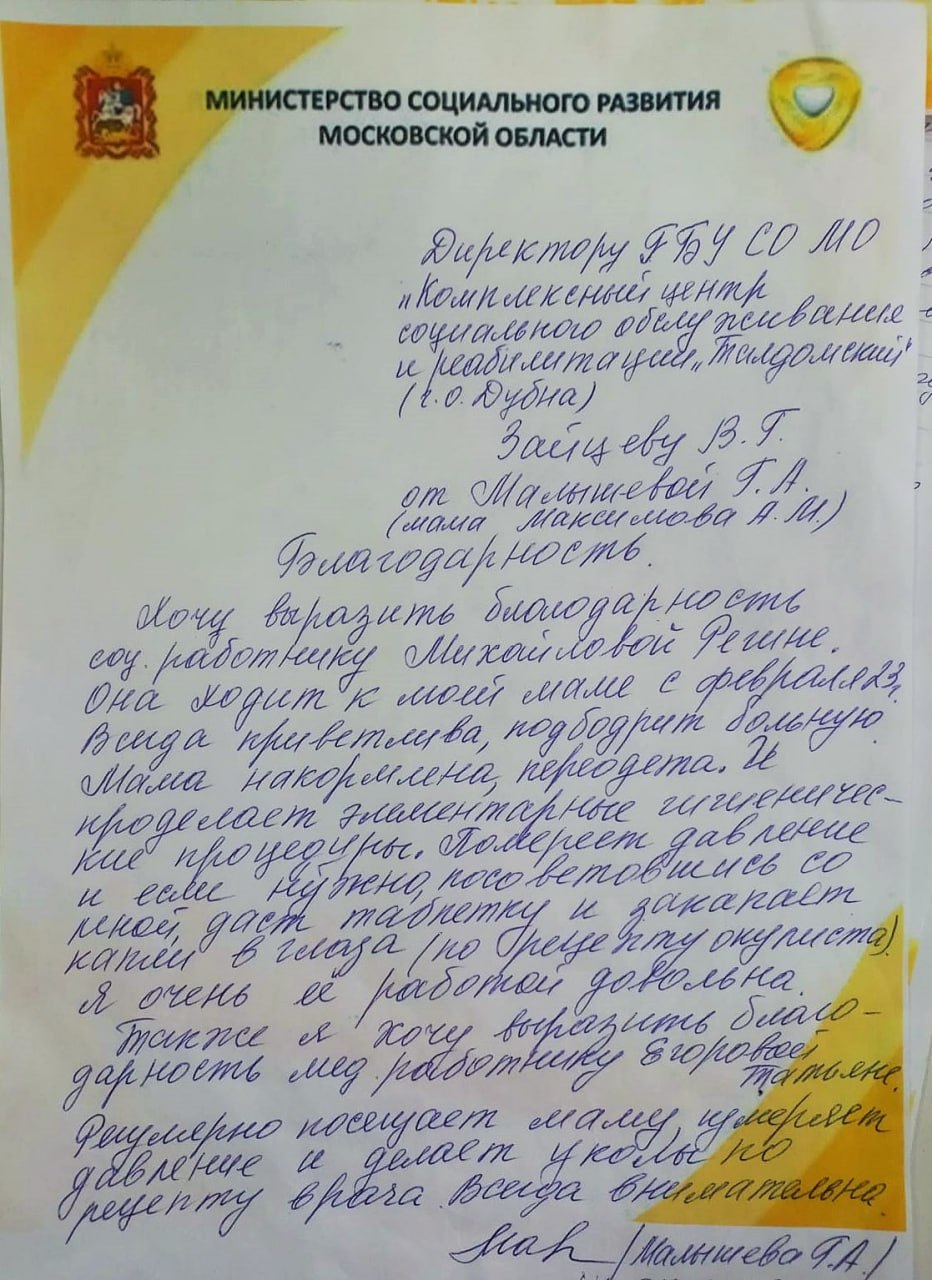 МИНИСТЕРСТВО СОЦИАЛЬНОГО РАЗВИТИЯ
МОСКОВСКОЙ ОБЛАСТИ
Директору ГБУ СО МО
"Комплексный центр
социального обслуживания
и реабилитации „Талдомский"
(г.о. Дубна)
Зайцеву В.Г.
от Малышевой Г.А.
(мама Максимова А.М.)
Благодарность.
Хочу выразить благодарность
соц. работнику Михайловой Регине.
Она ходит к моей маме с февраля 23г.
Всегда приветлива, подбодрит больную.
Мама накормлена, переодета. И
проделает элементарные гигиеничес-
кие процедуры. Помереет давление
и если нужно, посоветовшись со
мной, даст таблетку и закапает
капли в глаза (по рецепту окулиста).
Я очень её работой довольна.
Также я хочу выразить благо-
дарность мед. работнику Егоровой
Татьяне.
Регулярно посещает маму, измеряет
давление и делает уколы по
рецепту врача. Всегда внимательна.
(Малышева Г.А.)